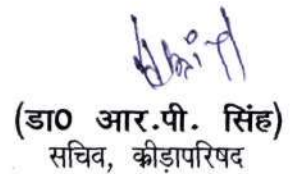 (डा0 आर.पी. सिंह)
सचिव, कीड़ापरिषद